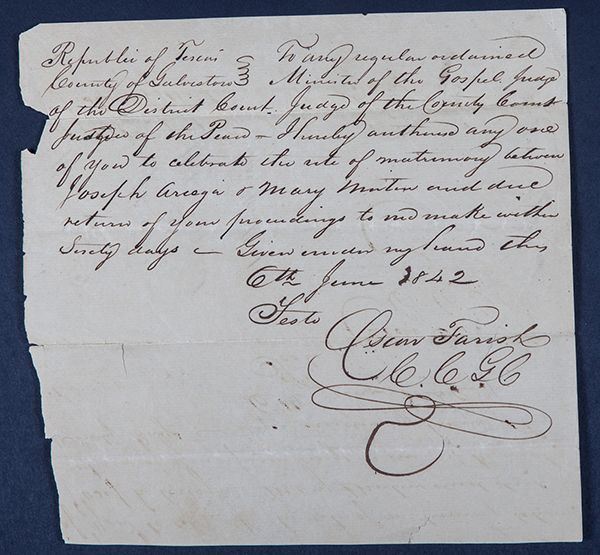 Republic of Texas To any regular ordained
County of Galveston Minister of the Gospel, Judge
of the District Court. Judge of the County Court
Justice of the Peace – I hereby authorise any one
of you to celebrate the rite of matrimony between
Joseph & Mary and due
return of your proceedings to me make within
Sixty days – Given under my hand this
6th June 1842
Teste
Oscar Farish
C. C. G. C